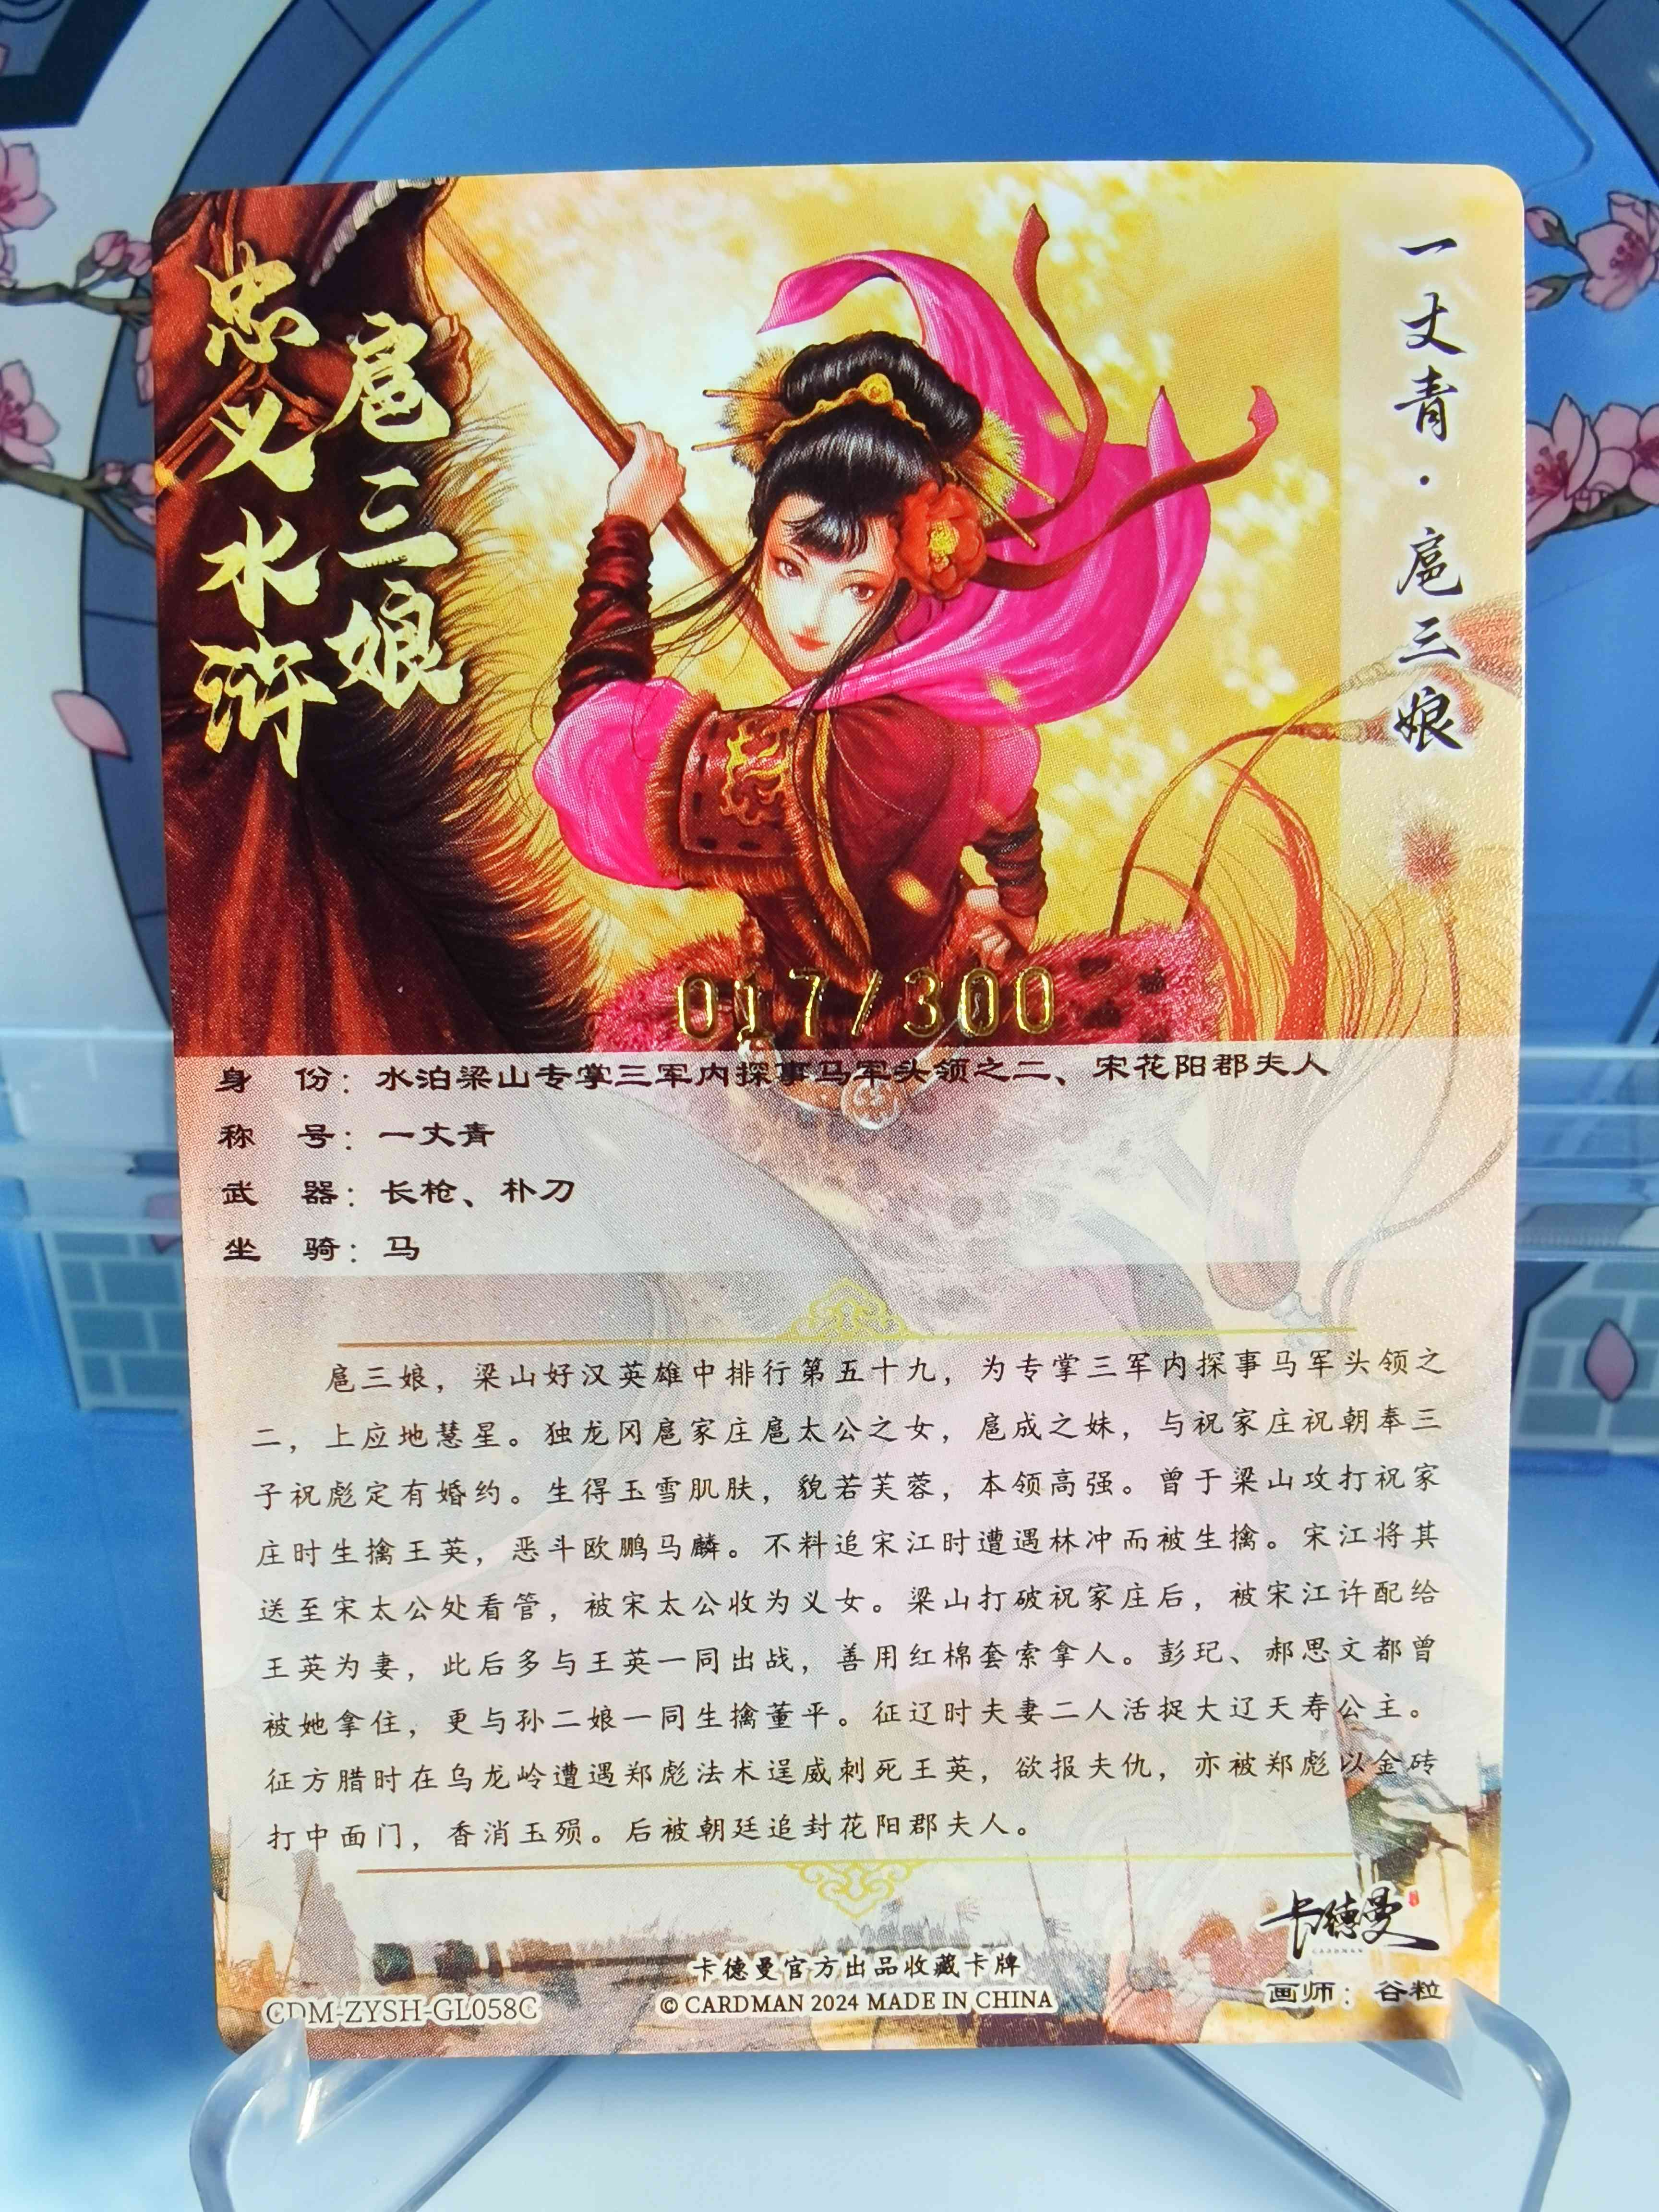 忠义水浒
扈三娘
一丈青·扈三娘
017/300
身 份：水泊梁山专掌三军内探事马军头领之二、宋花阳郡夫人
称 号：一丈青
武 器：长枪、朴刀
坐 骑：马
扈三娘，梁山好汉英雄中排行第五十九，为专掌三军内探事马军头领之
二，上应地慧星。独龙冈扈家庄扈太公之女，扈成之妹，与祝家庄祝朝奉三
子祝彪定有婚约。生得玉雪肌肤，貌若芙蓉，本领高强。曾于梁山攻打祝家
庄时生擒王英，恶斗欧鹏马麟。不料追宋江时遭遇林冲而被生擒。宋江将其
送至宋太公处看管，被宋太公收为义女。梁山打破祝家庄后，被宋江许配给
王英为妻，此后多与王英一同出战，善用红棉套索拿人。彭玘、郝思文都曾
被她拿住，更与孙二娘一同生擒董平。征辽时夫妻二人活捉大辽天寿公主。
征方腊时在乌龙岭遭遇郑彪法术逞威刺死王英，欲报夫仇，亦被郑彪以金砖
打中面门，香消玉殒。后被朝廷追封花阳郡夫人。
卡德曼
CARDMAN
卡德曼官方出品收藏卡牌
© CARDMAN 2024 MADE IN CHINA
画师：谷粒
CDM-ZYSH-GL058C